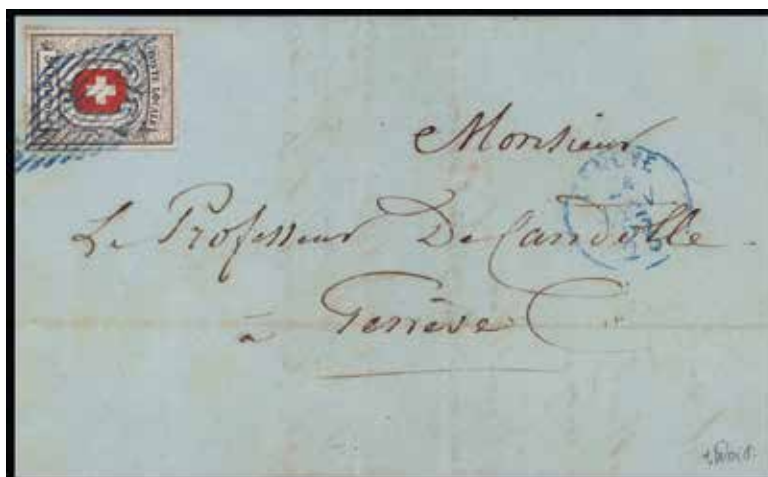 POSTE LOCALE
Monsieur
Le Professeur De Candolle.
à Genève